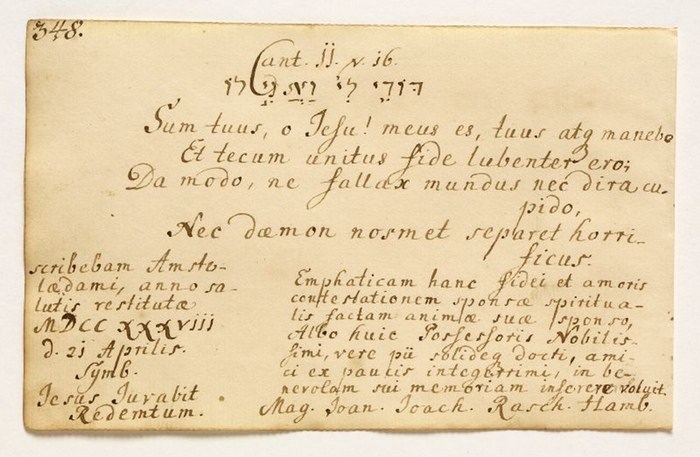 348.
Cant. II. v. 16.
דּוֹדִי לִי וַאֲנִי לוֹ
Sum tuus, o Jesu! meus es, tuus atq manebo
Et tecum unitus fide lubenter ero;
Da modo, ne fallax mundus nec dira cu-
pido,
Nec dæmon nosmet separet horri-
ficus.
scribebam Amste-
lædami, anno sa-
lutis restitutæ
MDCCXXXVIII
d. 21 Aprilis.
Symb.
Jesus Juvabit
Redemtum.
Emphaticam hanc fidei et amoris
contestationem sponsæ spiritua-
lis factam animæ suæ sponso,
Albo huic Possessoris Nobilis-
simi, vere pii solideq docti, ami-
ci ex paucis integerrimi, in be-
nevolam sui memoriam inserere voluit.
Mag. Joan. Joach. Rasch. Hamb.